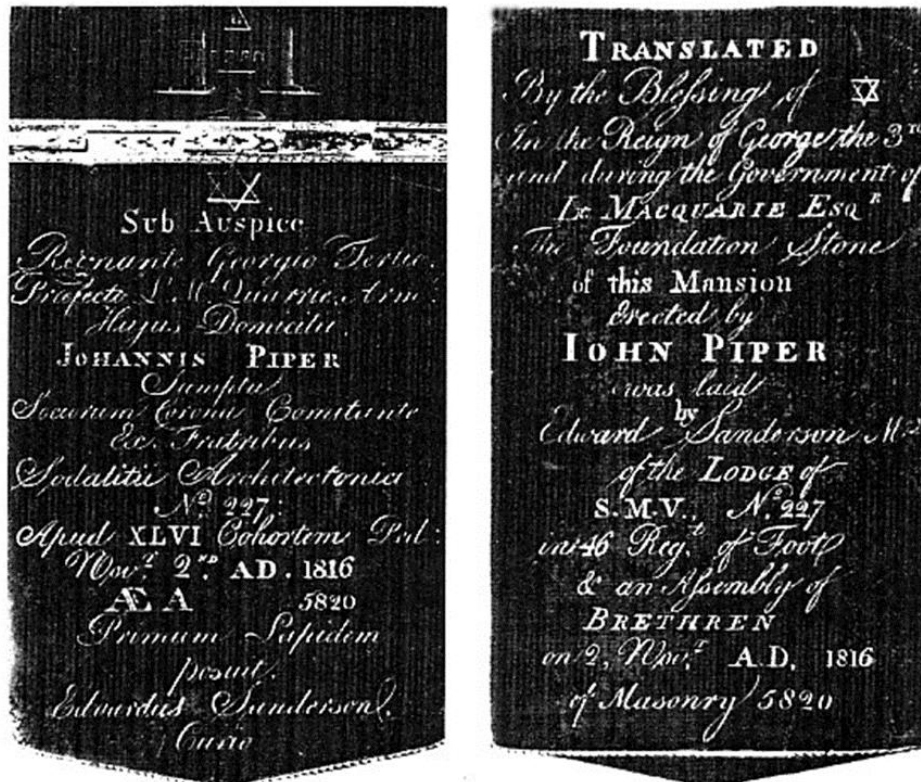 Sub Auspice
Regnante Georgio Tertio:
Præfecto L. M. Quarrie. Arm:
Hujus Domicilii.
JOHANNIS PIPER
Sumptu
Socorum Corona Comitante
Ex Fratribus
Sodalitii Architectonici
No. 227:
Apud XLVI Cohortem Prd:
Novr. 2ND. AD. 1816
Æ A 5820
Primum Lapidem
posuit.
Edvardus Sanderson.
Curio
TRANSLATED
By the Blessing of
In the Reign of George the 3
and during the Government of
MACQUARIE ESQR
The Foundation Stone
of this Mansion
Erected by
IOHN PIPER
was laid
by
Edward Sanderson
of the LODGE of
S.M.V., No. 227
in 46 Regt. of Foot
& an Assembly of
BRETHREN
on 2, Novr. A.D. 1816
of Masonry 5820